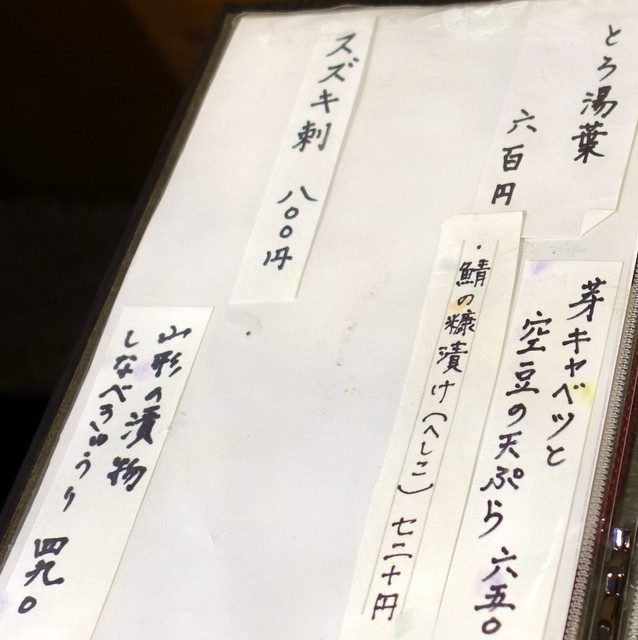 とろ湯葉
六百円
芽キャベツと
空豆の天ぷら 六五〇
・鯖の糠漬け(へしこ) 七二十円
スズキ刺 八〇〇円
山形の漬物
しなべきゅうり 四九〇